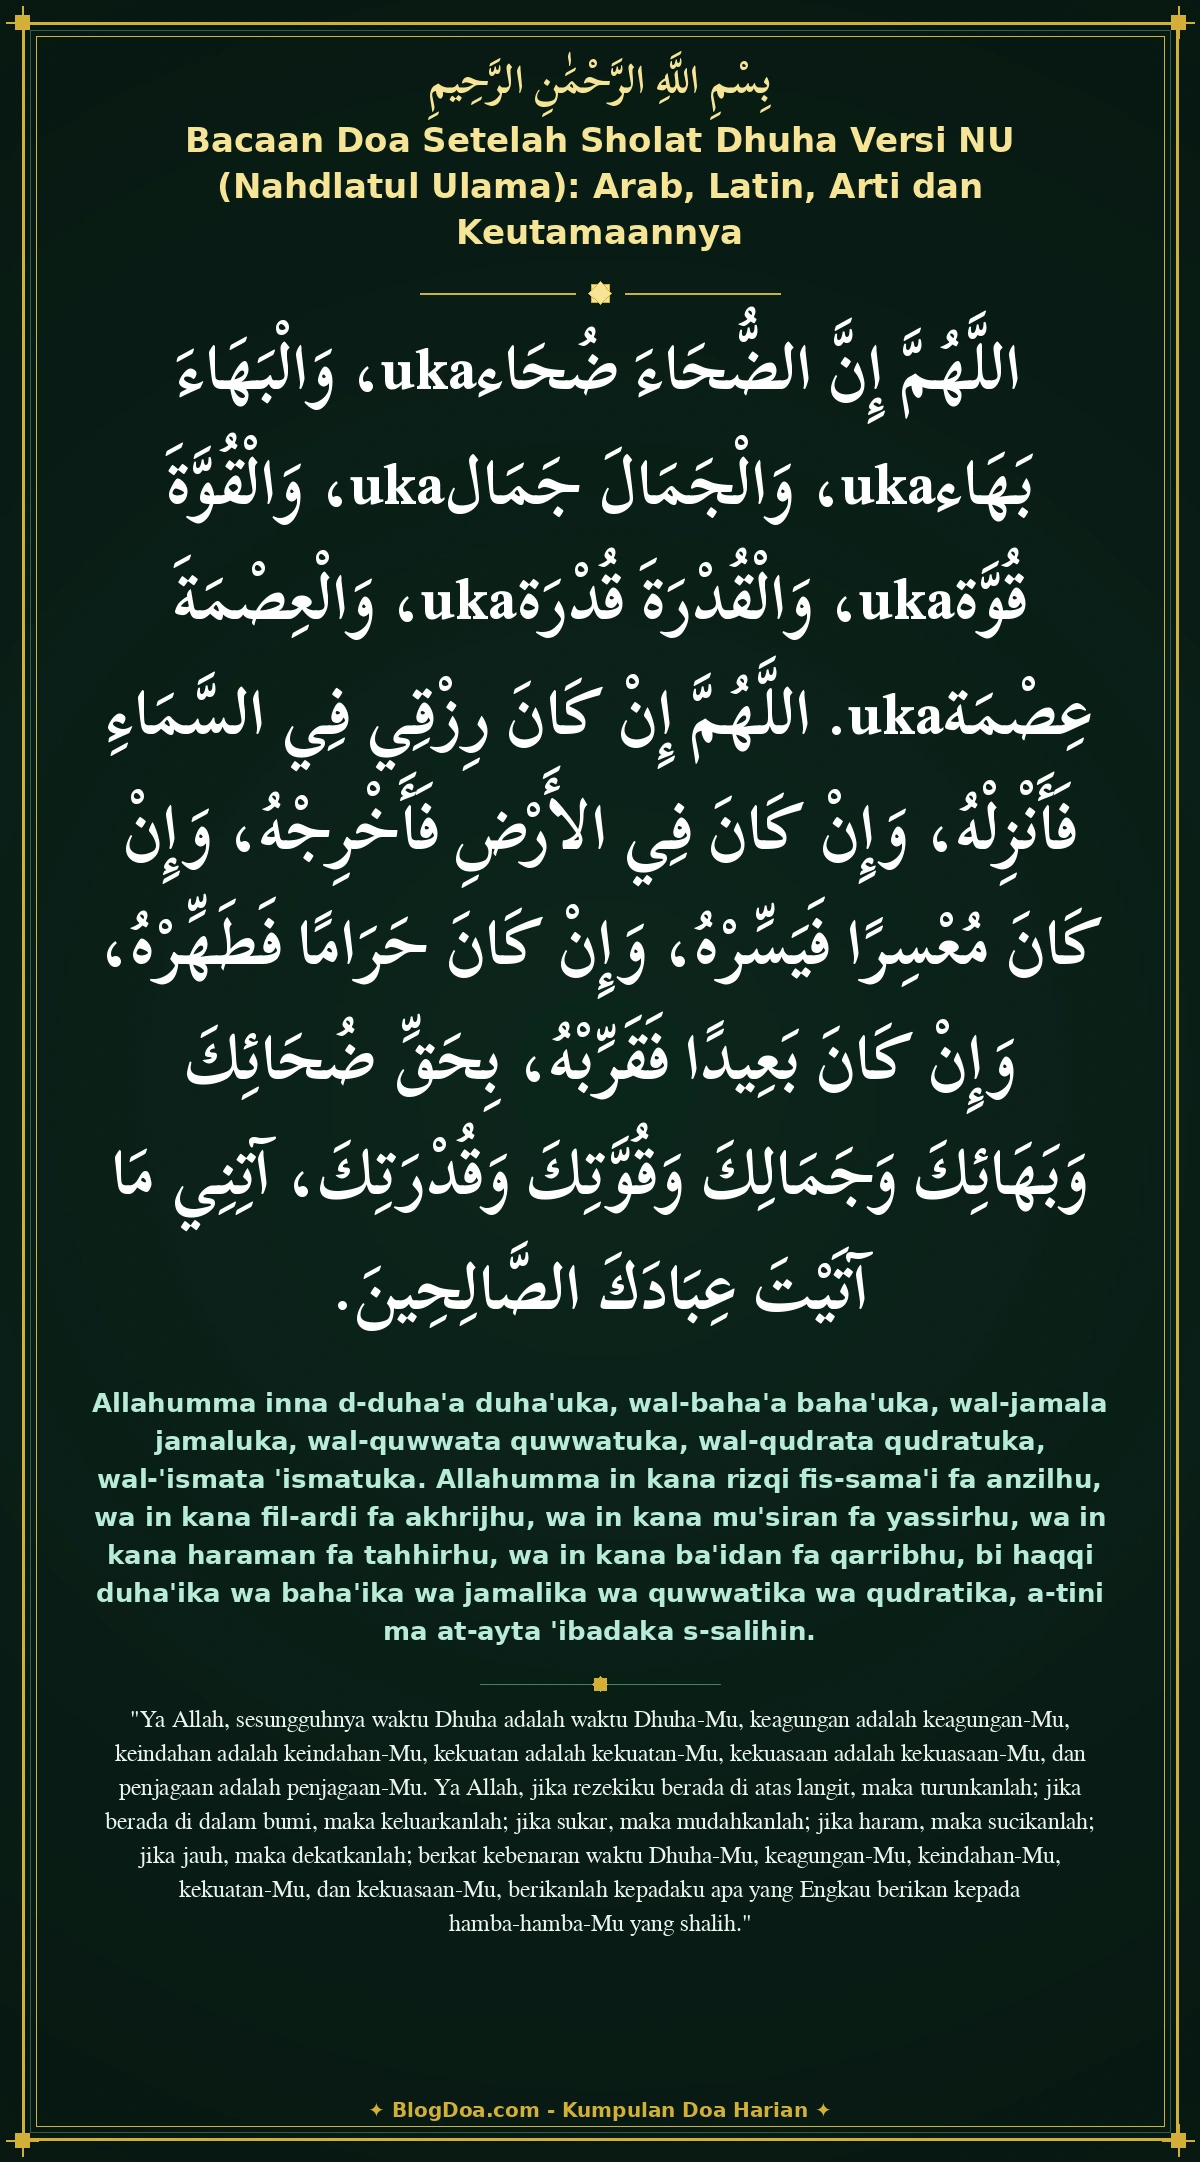 بِسْمِ اللَّهِ الرَّحْمَٰنِ الرَّحِيمِ
Bacaan Doa Setelah Sholat Dhuha Versi NU
(Nahdlatul Ulama): Arab, Latin, Arti dan
Keutamaannya
اللَّهُمَّ إِنَّ الضُّحَاءَ ضُحَاءuka، وَالْبَهَاءَ
بَهَاءuka، وَالْجَمَالَ جَمَالuka، وَالْقُوَّةَ
قُوَّةuka، وَالْقُدْرَةَ قُدْرَةuka، وَالْعِصْمَةَ
عِصْمَةuka. اللَّهُمَّ إِنْ كَانَ رِزْقِي فِي السَّمَاءِ
فَأَنْزِلْهُ، وَإِنْ كَانَ فِي الأَرْضِ فَأَخْرِجْهُ، وَإِنْ
كَانَ مُعْسِرًا فَيَسِّرْهُ، وَإِنْ كَانَ حَرَامًا فَطَهِّرْهُ،
وَإِنْ كَانَ بَعِيدًا فَقَرِّبْهُ، بِحَقِّ ضُحَائِكَ
وَبَهَائِكَ وَجَمَالِكَ وَقُوَّتِكَ وَقُدْرَتِكَ، آتِنِي مَا
آتَيْتَ عِبَادَكَ الصَّالِحِينَ.
Allahumma inna d-duha'a duha'uka, wal-baha'a baha'uka, wal-jamala
jamaluka, wal-quwwata quwwatuka, wal-qudrata qudratuka,
wal-'ismata 'ismatuka. Allahumma in kana rizqi fis-sama'i fa anzilhu,
wa in kana fil-ardi fa akhrijhu, wa in kana mu'siran fa yassirhu, wa in
kana haraman fa tahhirhu, wa in kana ba'idan fa qarribhu, bi haqqi
duha'ika wa baha'ika wa jamalika wa quwwatika wa qudratika, a-tini
ma at-ayta 'ibadaka s-salihin.
"Ya Allah, sesungguhnya waktu Dhuha adalah waktu Dhuha-Mu, keagungan adalah keagungan-Mu,
keindahan adalah keindahan-Mu, kekuatan adalah kekuatan-Mu, kekuasaan adalah kekuasaan-Mu, dan
penjagaan adalah penjagaan-Mu. Ya Allah, jika rezekiku berada di atas langit, maka turunkanlah; jika
berada di dalam bumi, maka keluarkanlah; jika sukar, maka mudahkanlah; jika haram, maka sucikanlah;
jika jauh, maka dekatkanlah; berkat kebenaran waktu Dhuha-Mu, keagungan-Mu, keindahan-Mu,
kekuatan-Mu, dan kekuasaan-Mu, berikanlah kepadaku apa yang Engkau berikan kepada
hamba-hamba-Mu yang shalih."
✦ BlogDoa.com - Kumpulan Doa Harian ✦